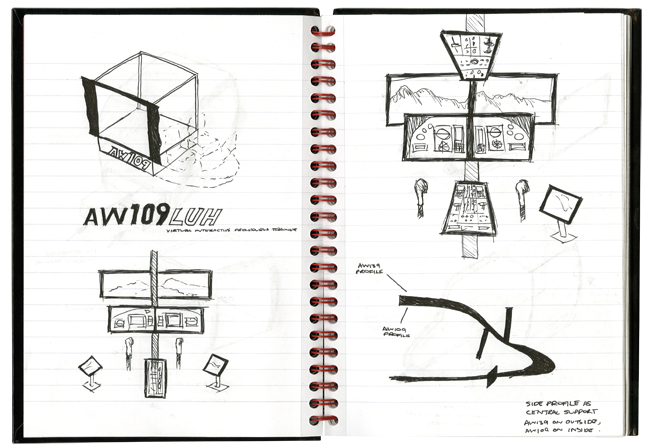 AW109
AW109LUH
VIRTUAL INTERACTIVE PROCEDURAL TRAINER
AW139
PROFILE
AW109
PROFILE
SIDE PROFILE AS
CENTRAL SUPPORT
AW139 ON OUTSIDE,
AW109 ON INSIDE.